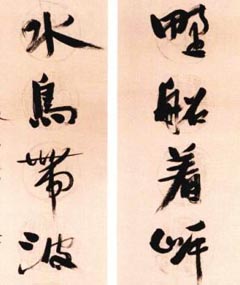 野船着岸
水鳥帶波